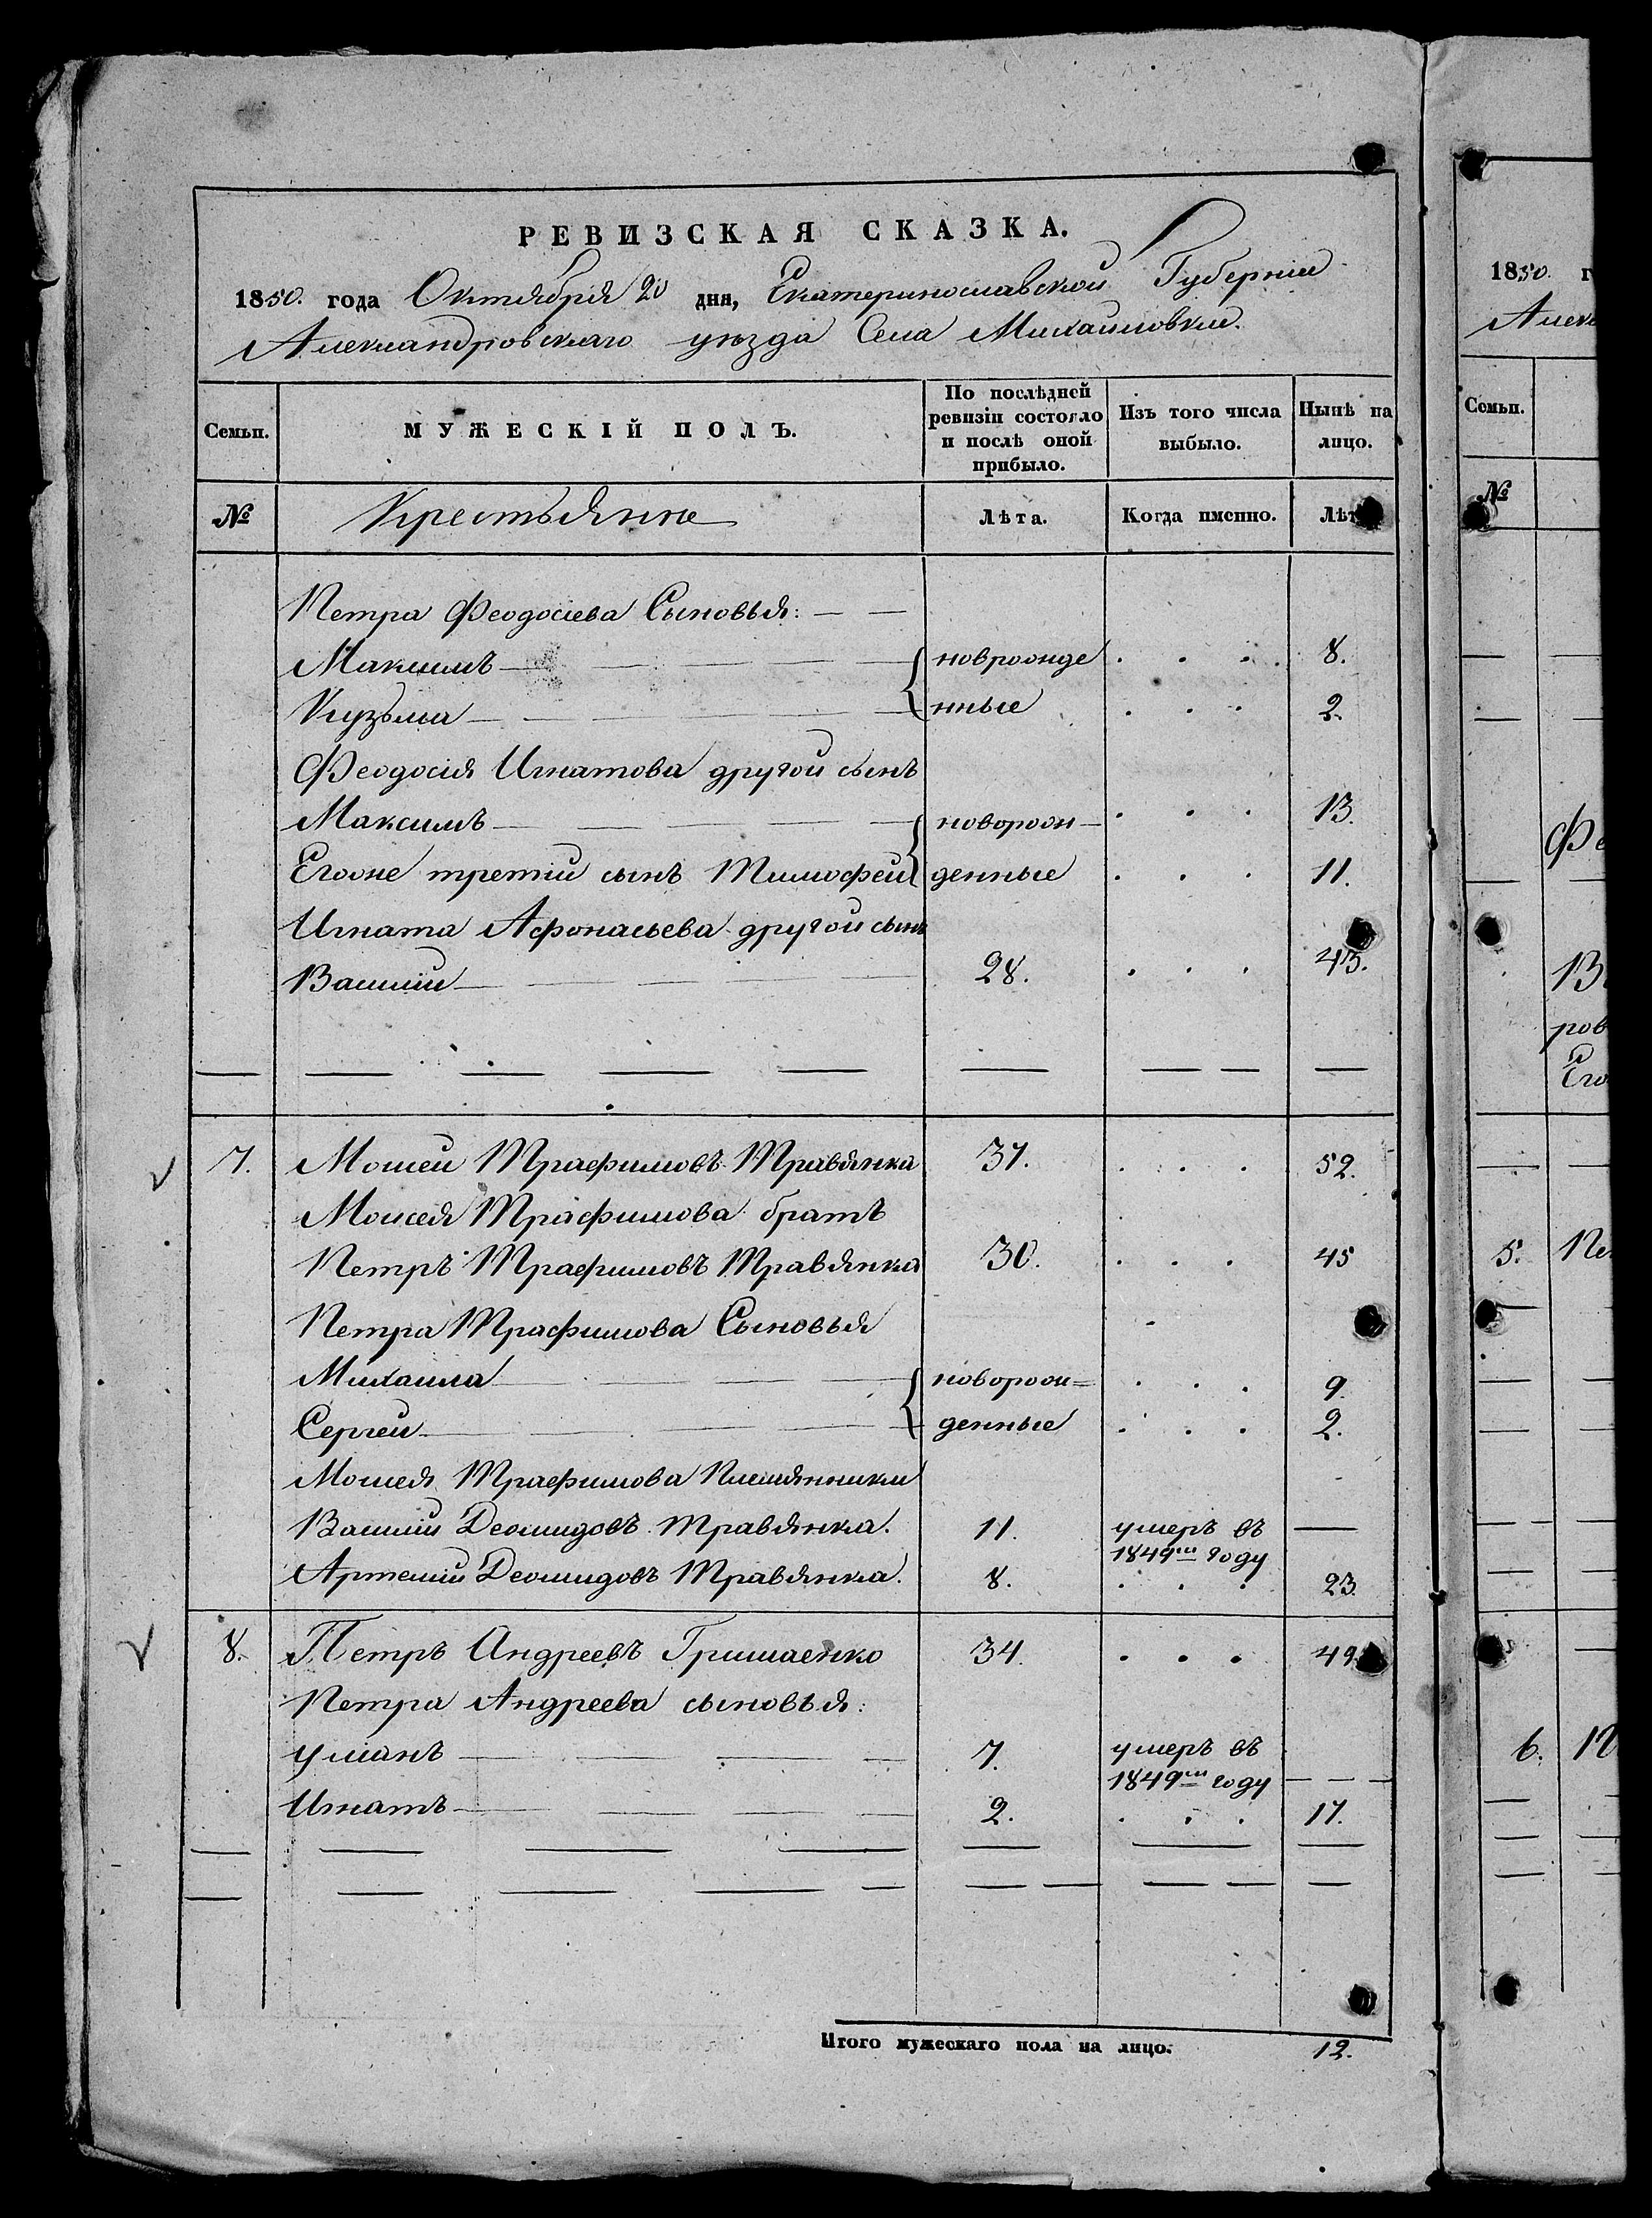 РЕВИЗСКАЯ СКАЗКА.
1850. года Октября 20 дня, Екатеринославской Губерніи
Александровскаго уѣзда Села Михайловки.
Семьи. МУЖЕСКІЙ ПОЛЪ. По послѣдней ревизіи состояло и послѣ оной прибыло. Изъ того числа выбыло. Нынѣ на лицо.
№ Крестьянне Лѣта. Когда именно. Лѣт
Петра Феодосіева Сыновья:
Максимъ новрожде 8.
Кузьма нные 2.
Феодосія Игнатова другой сынъ
Максимъ новорож- 13.
Егоже третій сынъ Тимофей денные 11.
Игната Афонасьева другой сынъ
Василій 28. 43.
7. Моисей Трафимовъ Травянка 37. 52.
Моисея Трафимова братъ
Петръ Трафимовъ Травянка 30. 45
Петра Трафимова Сыновья
Михаила новорож= 9.
Сергей денные 2.
Моисея Трафимова Племянники
Василій Деомидовъ Травянка. 11. умеръ въ
1849мъ году
Артемій Деомидовъ Травянка. 8. 23.
8. Петръ Андреевъ Гришаенко 34. 49
Петра Андреева сыновья:
Уліанъ 7. умеръ въ
1849мъ году
Игнатъ 2. 17.
Итого мужескаго пола на лицо. 12.
1850 г
Алек
Семьи.
№
Фе
В
ров
Его
5. Пе
6. П